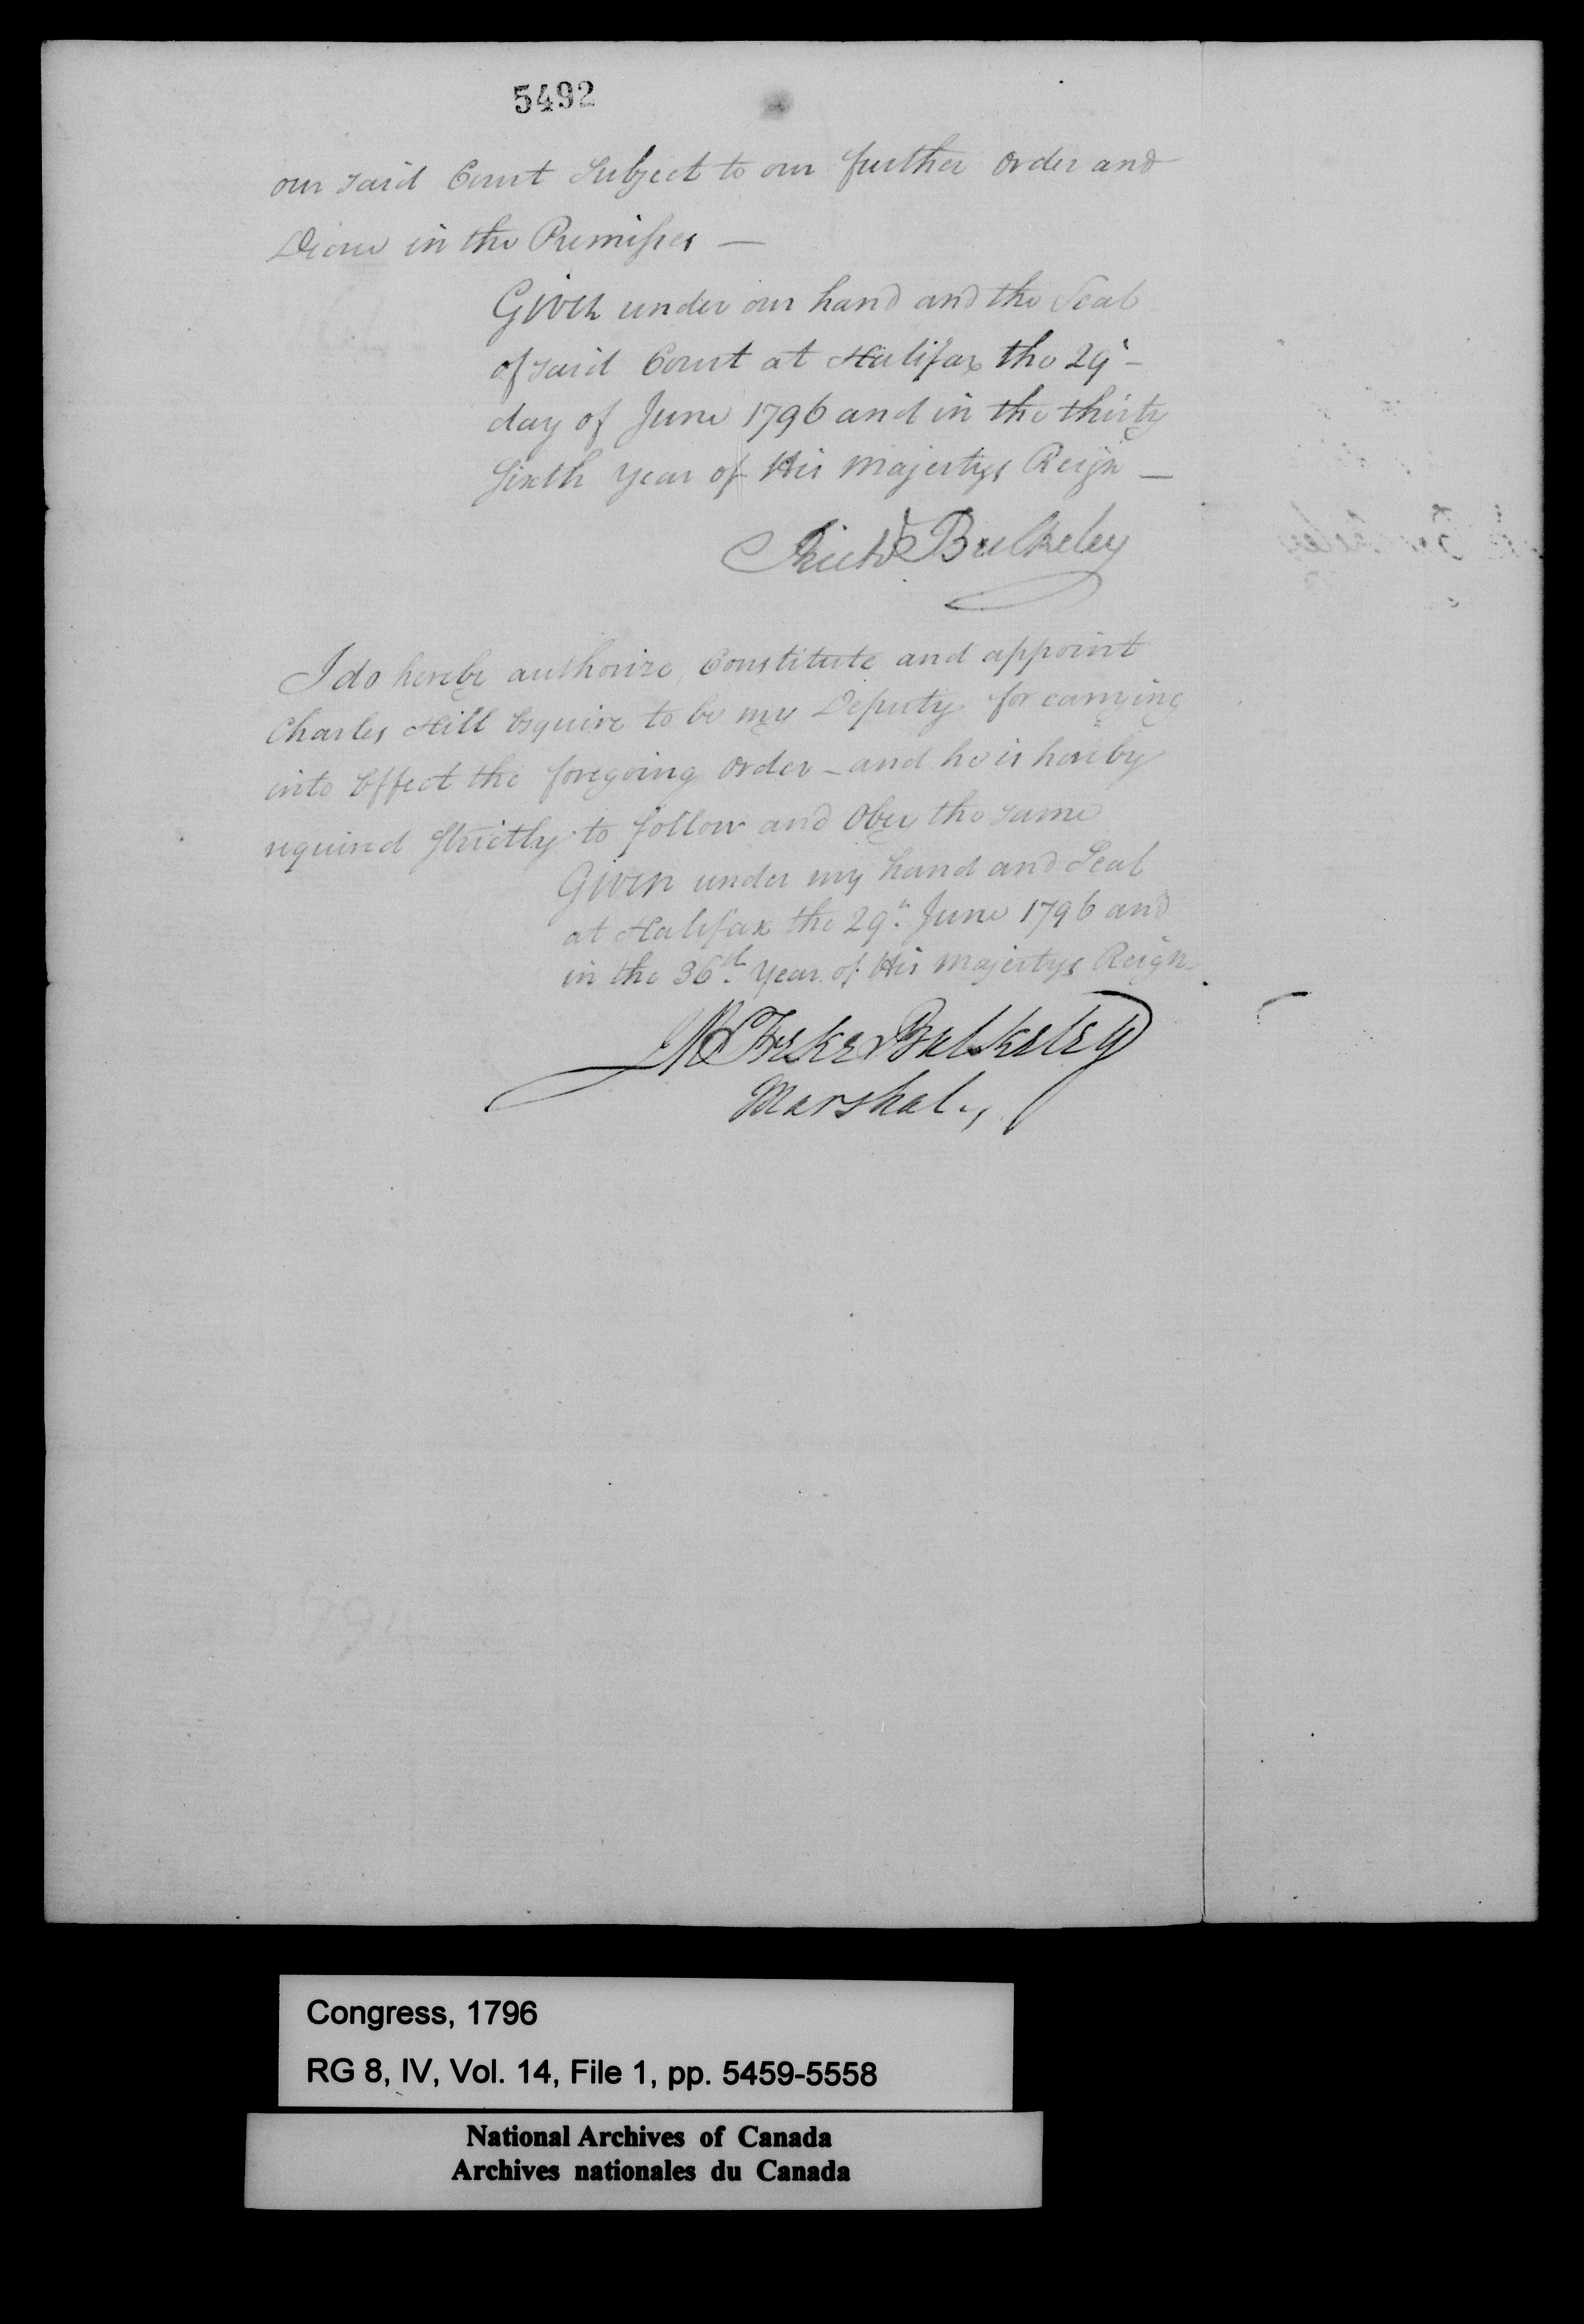 5492
our said Court Subject to our further order and
in the Premisses —
Given under our hand and the Seal
of said Court at Halifax the 29th —
day of June 1796 and in the thirty
Sixth Year of His Majestys Reign —
Richd Bulkeley
I do hereby authorize, Constitute and appoint
Charles Hill Esquire to be my Deputy for carrying
into Effect the foregoing order — and he is hereby
required Strictly to follow and Obey the same
Given under my hand and Seal
at Halifax the 29th June 1796 and
in the 36th Year of His Majestys Reign —
Freke Bulkeley
Marshal.,
Congress, 1796
RG 8, IV, Vol. 14, File 1, pp. 5459-5558
National Archives of Canada
Archives nationales du Canada